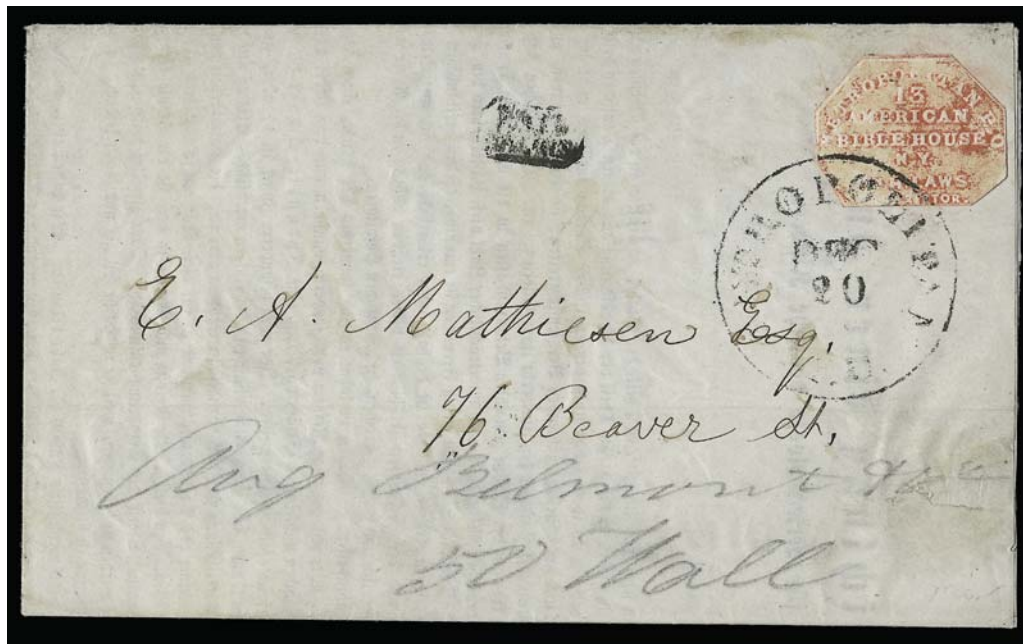 METROPOLITAN P.O.
13
AMERICAN
BIBLE HOUSE
N.Y.
LAWS
PAID
DEC
20
E. A. Mathiesen Esq.
76 Beaver St,
Aug Belmont & Co
50 Wall